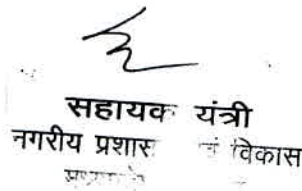 सहायक यंत्री
नगरीय प्रशास विकास